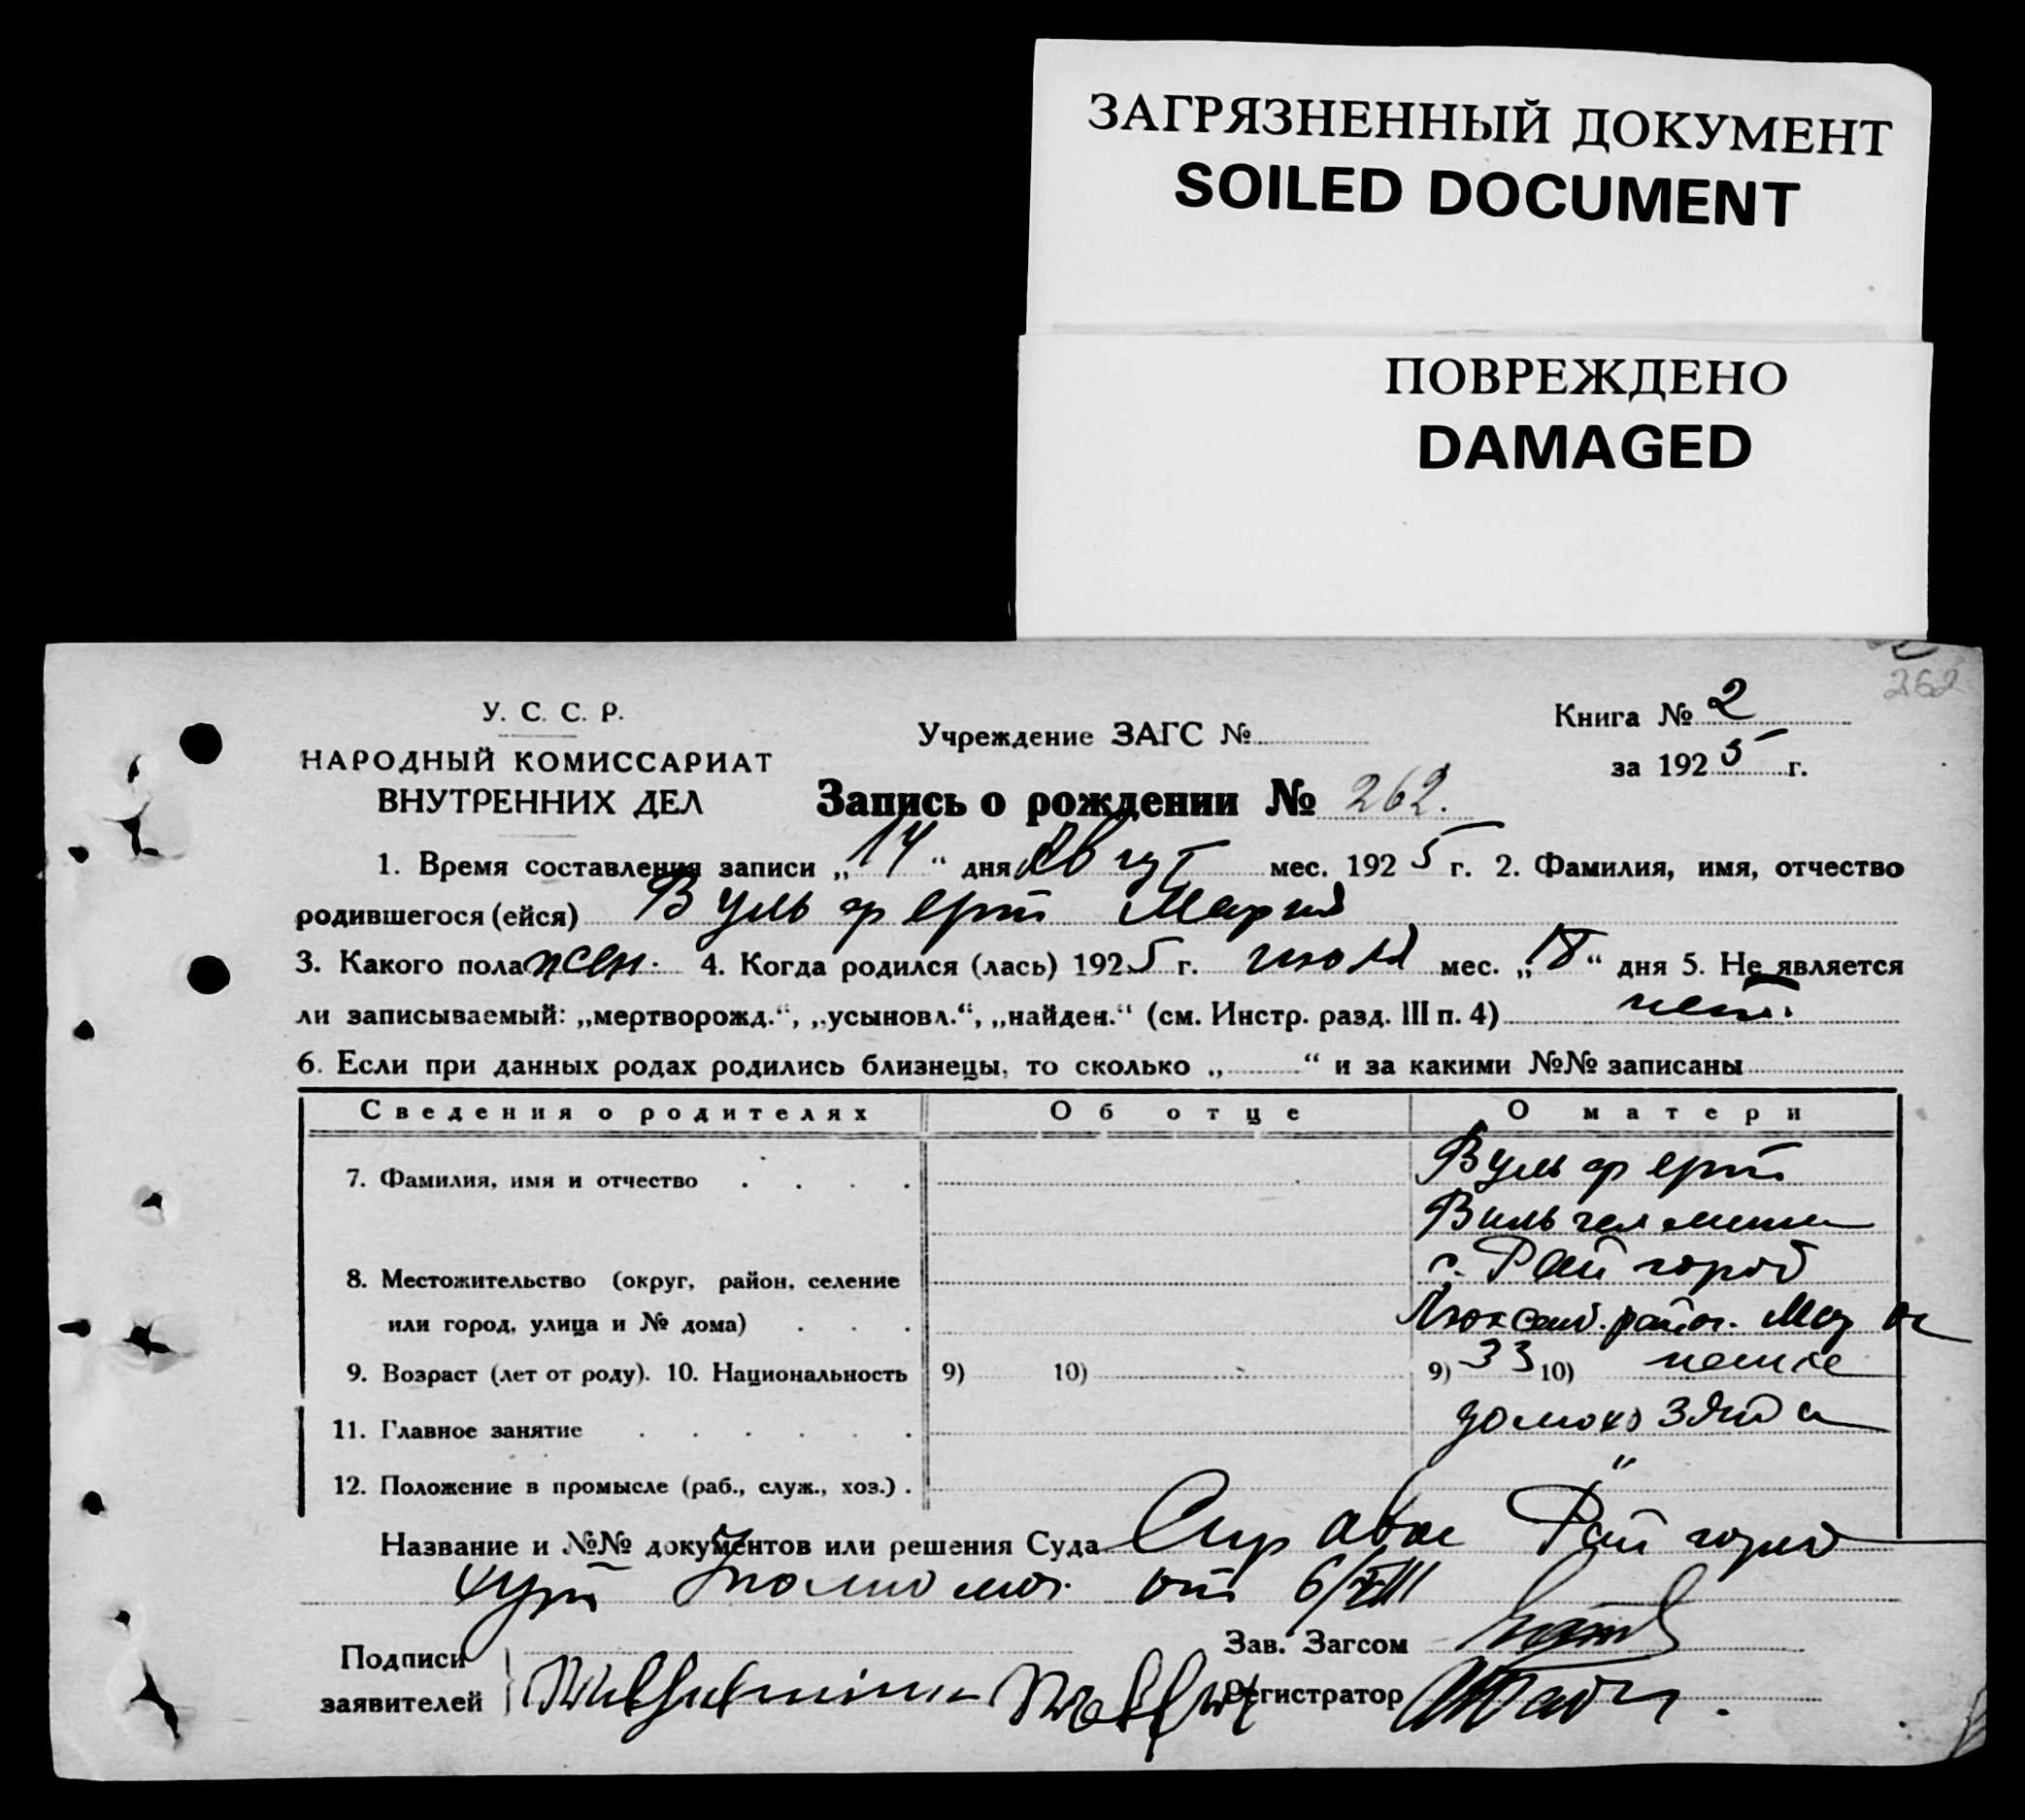 ЗАГРЯЗНЕННЫЙ ДОКУМЕНТ
SOILED DOCUMENT
ПОВРЕЖДЕНО
DAMAGED
262
У. С. С. Р.
НАРОДНЫЙ КОМИССАРИАТ
ВНУТРЕННИХ ДЕЛ
Учреждение ЗАГС №
Книга № 2
за 1925 г.
Запись о рождении № 262.
1. Время составления записи „14“ дня Август мес. 1925 г. 2. Фамилия, имя, отчество
родившегося (ейся) Вульферт Мария
3. Какого пола жен. 4. Когда родился (лась) 1925 г. июля мес. „18“ дня 5. Не является
ли записываемый: „мертворожд.“, „усыновл.“, „найден.“ (см. Инстр. разд. III п. 4) нет.
6. Если при данных родах родились близнецы, то сколько „ “ и за какими №№ записаны
Сведения о родителях Об отце О матери
7. Фамилия, имя и отчество . . . . Вульферт
Вильгельмина
8. Местожительство (округ, район, селение с. Райгород
или город, улица и № дома) . . . Люксем. район. Мар ок
9. Возраст (лет от роду). 10. Национальность 9) 10) 9) 33 10) немка
11. Главное занятие . . . . . . домохозяйка
12. Положение в промысле (раб., служ., хоз.) . "
Название и №№ документов или решения Суда Справка Райгород
от 6/VIII
Подписи
заявителей Wilhelmina Wulfert
Зав. Загсом
Регистратор